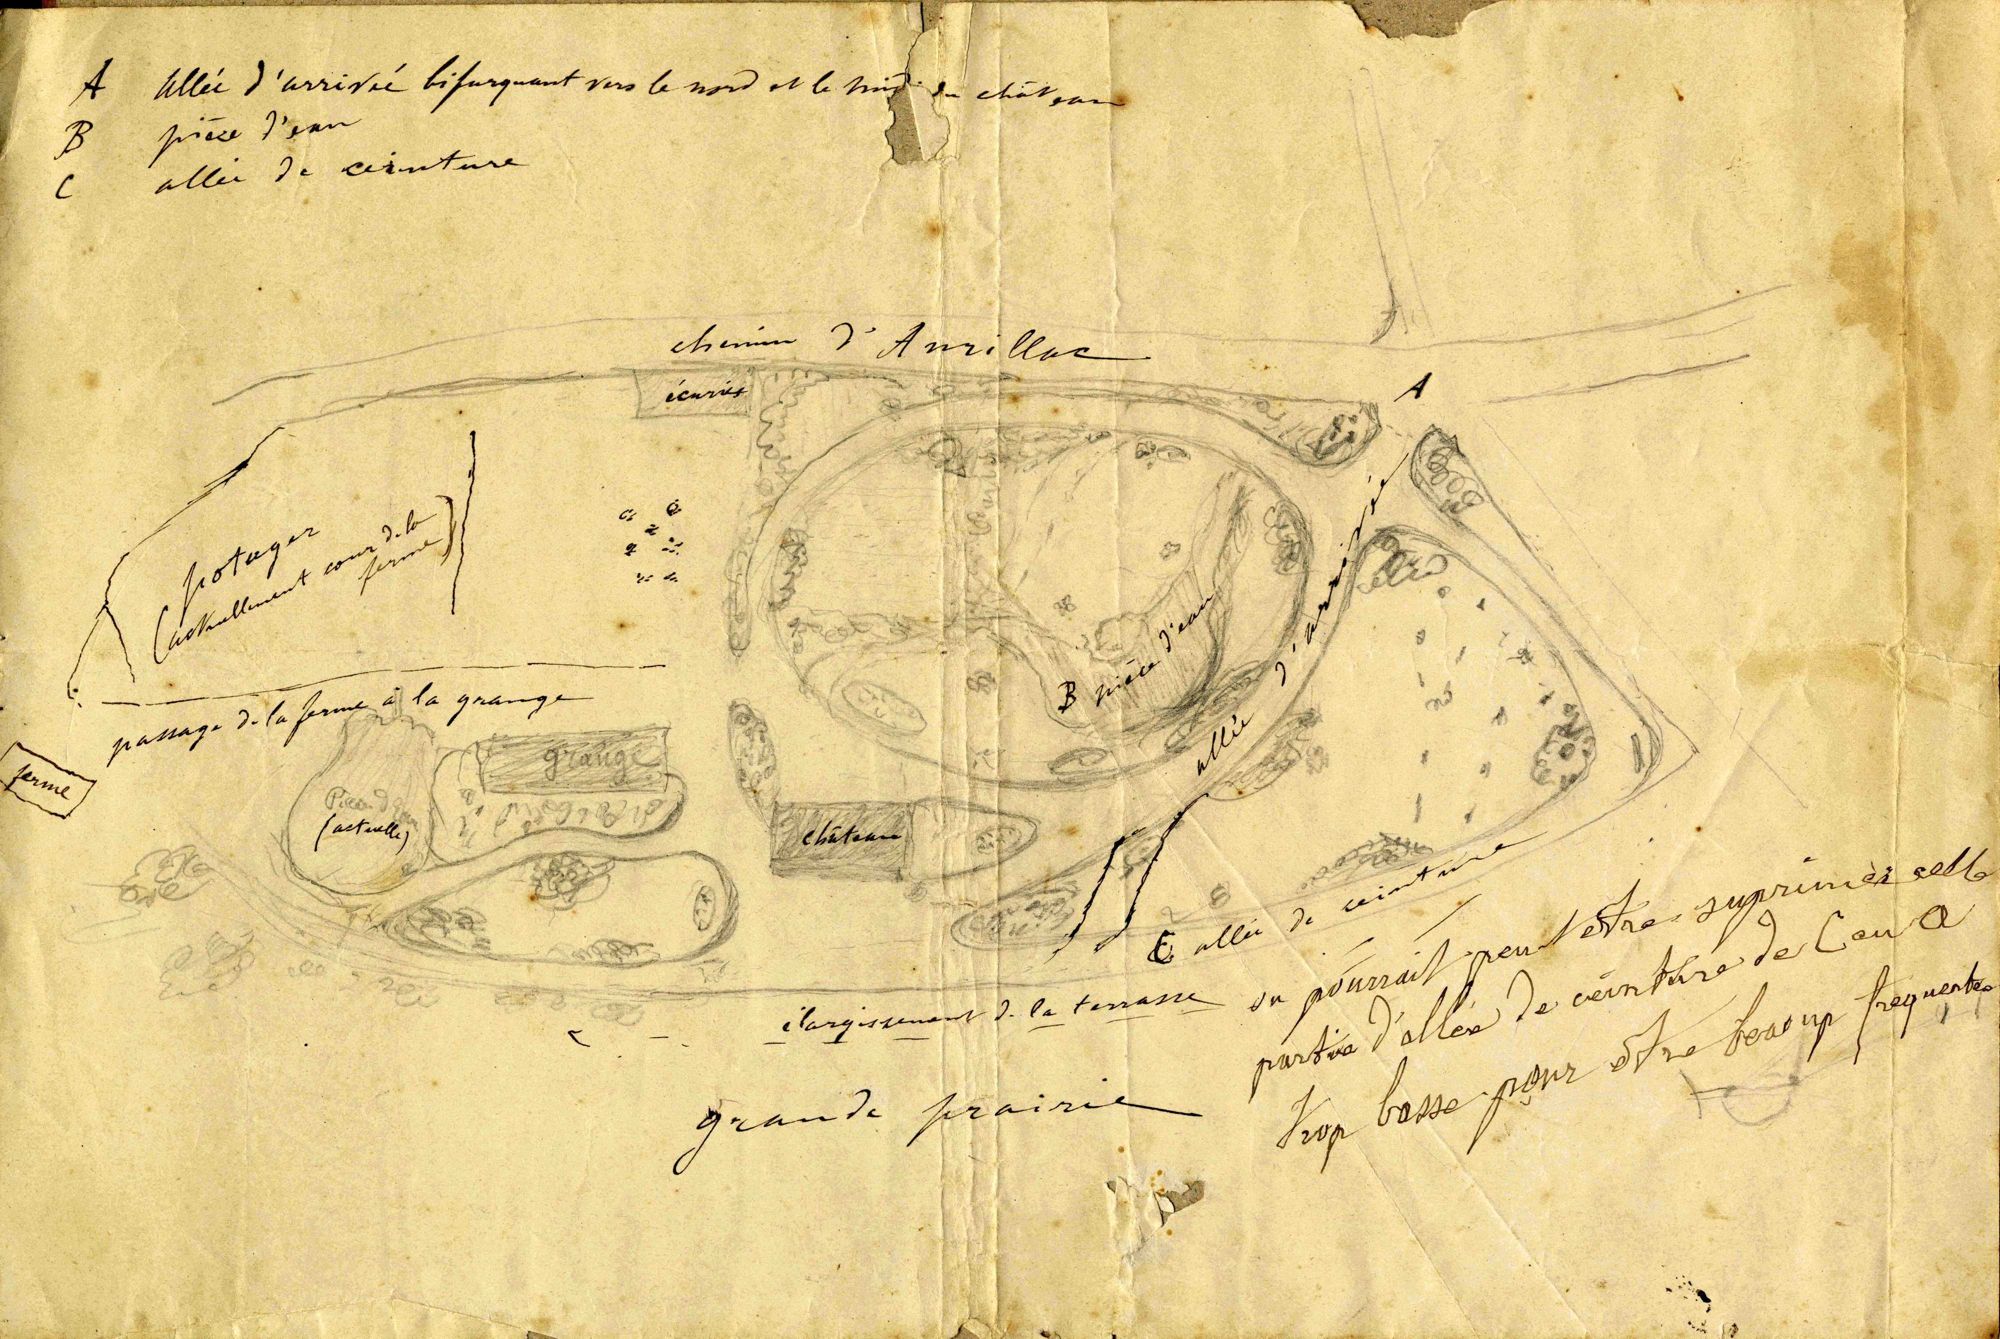 A allée d'arrivée bifurquant vers le nord et le midi du château
B pièce d'eau
C allée de ceinture
chemin d'Aurillac
écuries
A
potager
(actuellement cour de la
ferme)
passage de la ferme à la grange
ferme
grange
Pièce d'eau
(actuelle)
château
B pièce d'eau
allée d'arrivée
C allée de ceinture
élargissement de la terrasse
grande prairie
on pourrait peut être suprimer cette
partie d'allée de ceinture de C en A
trop basse pour être beaoup frequentée